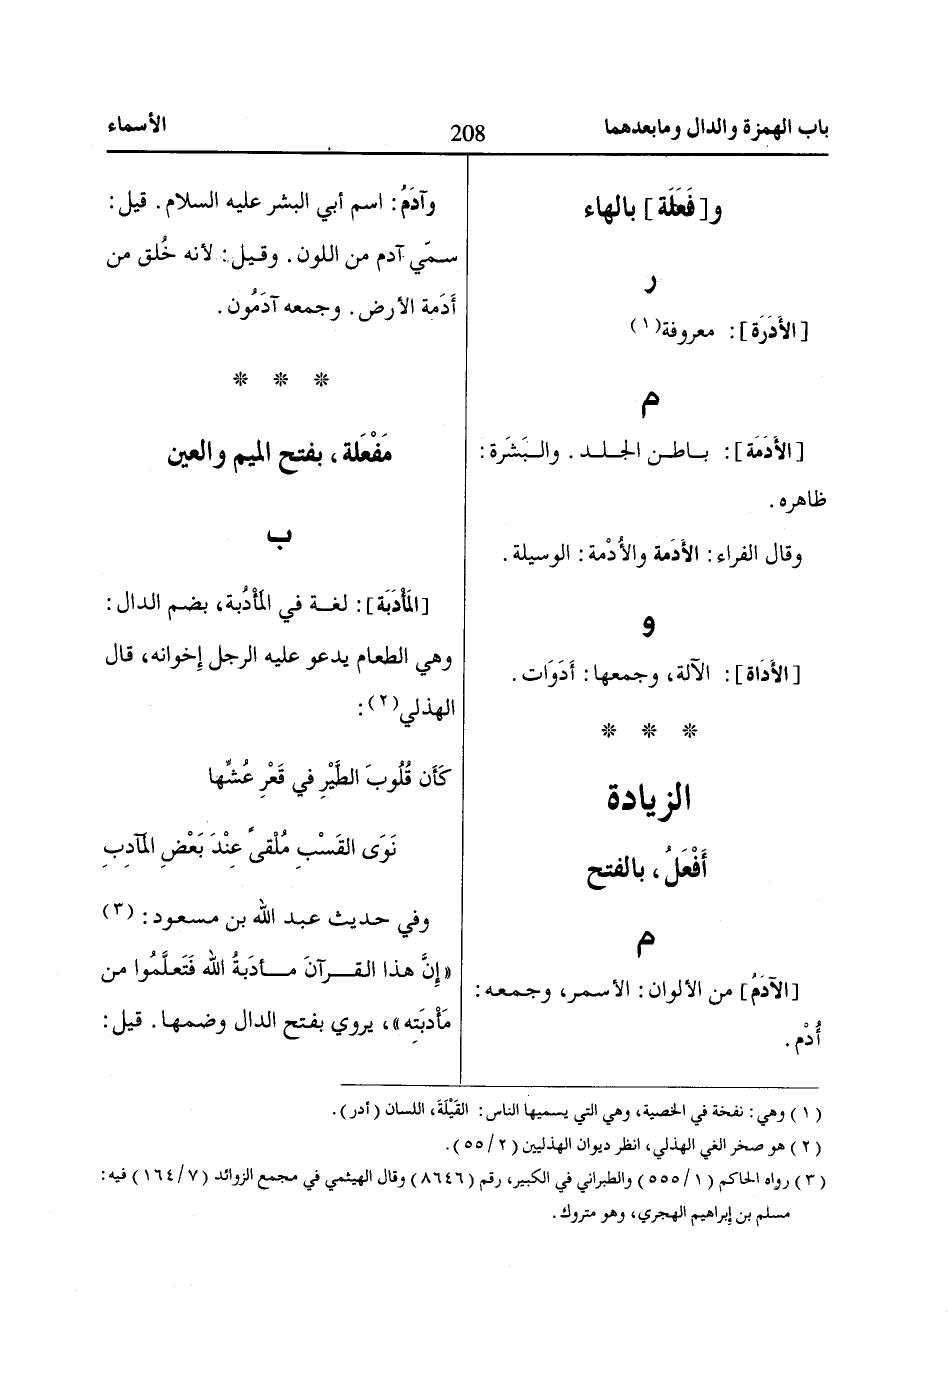 باب الهمزة والدال ومابعدهما
208
الأسماء
و[فَعَلَة] بالهاء
ر
[الأَدَرَة]: معروفة(١)
م
[الأَدَمَة]: باطن الجلد. والبَشَرة:
ظاهره.
وقال الفراء: الأَدَمة والأُدْمة: الوسيلة.
و
[الأَدَاة]: الآلة، وجمعها: أَدَوَات.
* * *
الزيادة
أَفْعَلُ، بالفتح
م
[الآدَمُ] من الألوان: الأسمر، وجمعه:
أُدْم.
وآدَمُ: اسم أبي البشر عليه السلام. قيل:
سمّي آدم من اللون. وقيل: لأنه خُلق من
أَدَمة الأرض. وجمعه آدَمُون.
* * *
مَفْعَلة، بفتح الميم والعين
ب
[المَأْدَبَة]: لغة في المَأْدُبة، بضم الدال:
وهي الطعام يدعو عليه الرجل إخوانه، قال
الهذلي(٢):
كَأَن قُلُوبَ الطَّيْرِ في قَعْرِ عُشِّها
نَوَى القَسْبِ مُلْقىً عِنْدَ بَعْضِ المَآدِبِ
وفي حديث عبد الله بن مسعود: (٣)
«إِنَّ هذا القرآنَ مأدَبَةُ الله فَتَعلَّمُوا من
مَأْدبَتِه»، يروي بفتح الدال وضمها. قيل:
(١) وهي: نفخة في الخصية، وهي التي يسميها الناس: القَيْلَةَ، اللسان (أدر).
(٢) هو صخر الغي الهذلي، انظر ديوان الهذليين (٢/٥٥).
(٣) رواه الحاكم (١/٥٥٥) والطبراني في الكبير، رقم (٨٦٤٦) وقال الهيثمي في مجمع الزوائد (٧/١٦٤) فيه:
مسلم بن إبراهيم الهجري، وهو متروك.